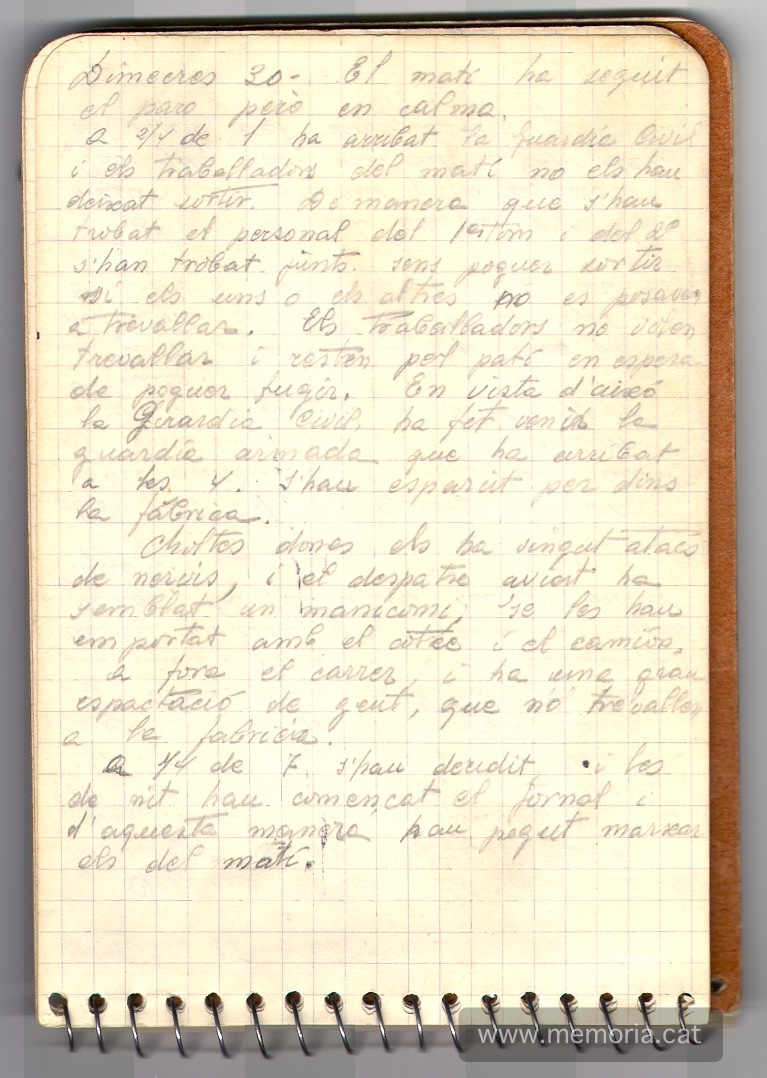 Dimecres 30- El matí ha seguit
el paro però en calma.
a 2/4 de 1 ha arribat la guardia Civil
i els traballadors del matí no els han
deixat sortir. De manera que s'han
trobat el personal del 1er torn i del 2º
s'han trobat junts. sens poguer sortir
si els uns o els altres no es posavan
a trevallar. Els traballadors no volen
trevallar i resten pel patí en espera
de poguer fugir. En vista d'aixó
la Guardia Civil, ha fet venir la
guardia armada que ha arribat
a les 4. S'han esparcit per dins
la fábrica.
Moltes dones els ha vingut atacs
de nervis, i el despatx aviat ha
semblat un manicomi, se les han
emportat amb el cotxe i el camións.
a fora el carrer, i ha una gran
espactació de gent, que no trevallen
a la fabrica.
a 1/4 de 7 s'han decidit, i les
de nit han començat el jornal i
d'aquesta manera han pogut marxar
els del matí.
www.memoria.cat